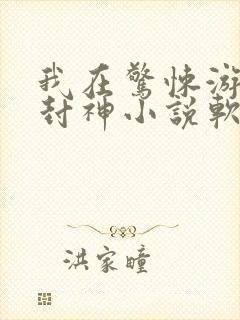 我在驚悚游
封神小說軟
洪家瞳